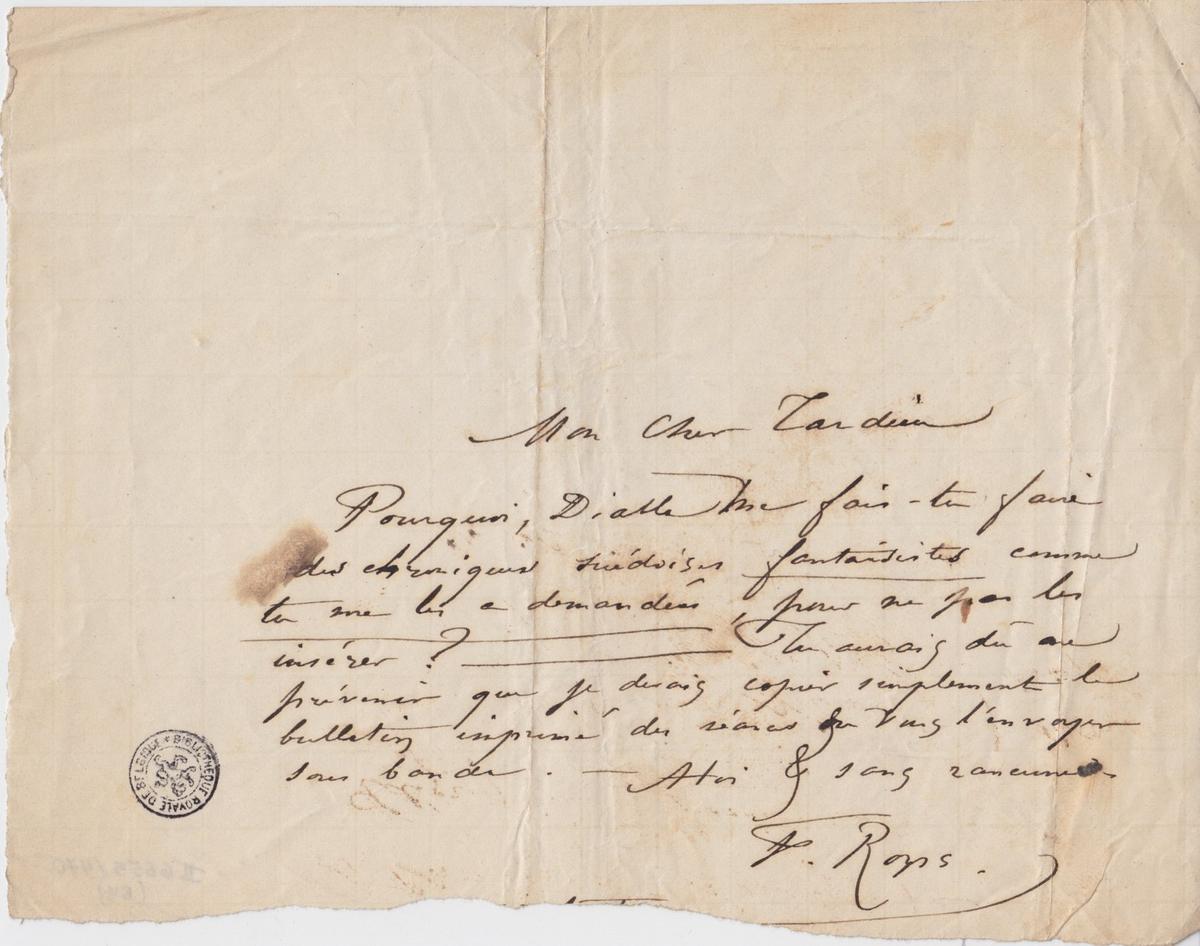 Mon Cher Tardieu
Pourquoi, Diable me fais-tu faire
des chroniques suédoises fantaisistes comme
tu me les a demandées, pour ne pas les
insérer ? Tu aurais dû me
prévenir que je devais copier simplement le
bulletin imprimé des séances & vous l'envoyer
sous bande. — A toi & sans rancune
F. Rops.
BIBLIOTHEQUE ROYALE DE BELGIQUE